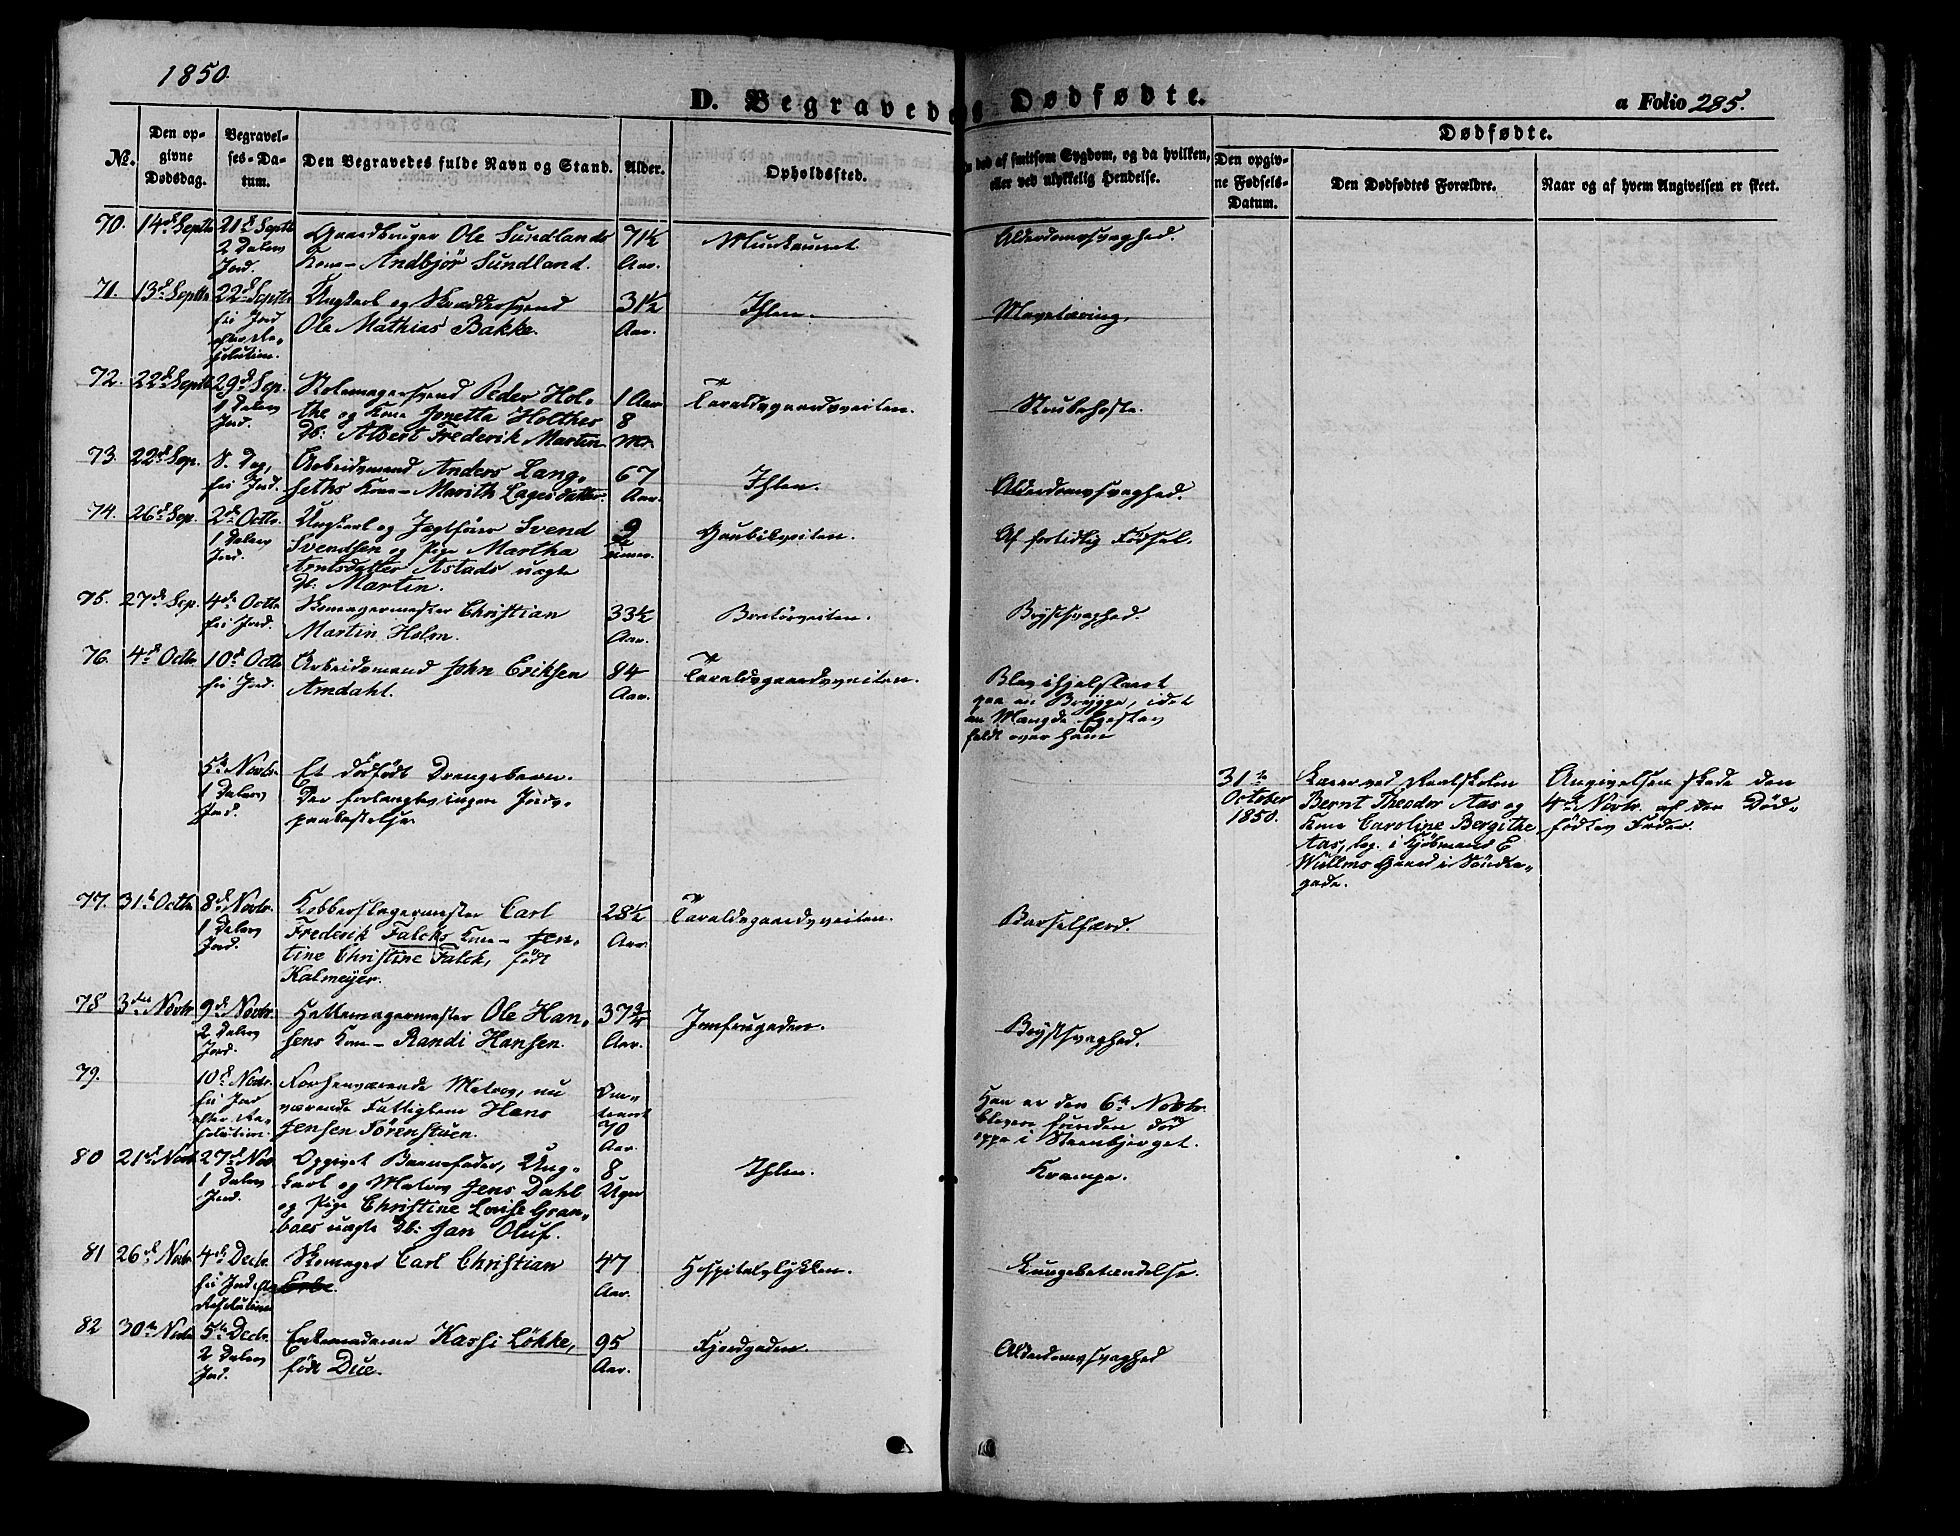 1850.
D. Begravede og Dødfødte.
a Folio 285.
No.
Den opgivne Dødsdag.
Begravelses-Datum.
Den Begravedes fulde Navn og Stand.
Alder.
Opholdssted.
død af smitsom Sygdom, og da hvilken,
eller ved ulykkelig Hendelse.
Dødfødte.
Den opgivne Fødsels-Datum.
Den Dødfødtes Forældre.
Naar og af hvem Angivelsen er skeet.
70. 14de Septbr 21de Septbr Gaardbruger Ole Sundlands 71½
2 Dalers Kone- Andbjør Sundland. Aar. Alderdomssvaghed.
Jord.
71. 13de Septbr 22de Septbr Ungkarl og Skræddersvend 31½ Ihlen.
fri Jord Ole Mathias Bakke. Aar. Mavetæring.
efter Re-
solution.
72. 22de Septbr 29de Sep. Stolemagersvend Peder Hol- 1 Aar Taraldsgaardsveiten.
1 Dalers the og Kone Jonetta Holthes 8 Strubehoste.
Jord. Db: Albert Frederik Martin Mr.
73. 22de Sep. S. Dag, Arbeidsmand Anders Lang- 67 Ihlen.
fri Jord. seths Kone- Marith Lagesdatter. Aar. Alderdomssvaghed.
74. 26de Sep. 2de Octbr. Ungkarl og Jegtfører Svend 2 Gaubækveiten.
1 Dalers Svendsen og Pige Martha Timer. Af fortidlig Fødsel.
Jord. Arntsdatter Astads uægte
Db: Martin.
75. 27de Sep. 4de Octbr Skomagermester Christian 33½
fri Jord. Martin Holm. Aar. Brystsvaghed.
76. 4de Octbr 10de Octbr Arbeidsmand John Eriksen 84 Taraldsgaardsveiten.
fri Jord. Amdahl. Aar. Blev ihjelslaaet
paa en Brygge, idet
en Mængde
faldt over ham
5te Novbr. Et dødfødt Drengebarn.
1 Dalers Der forlangtes ingen Jords-
Jord. paakastelse.
31te October 1850.
Lærer ved Realskolen
Bernt Theodor Aas og
Kone Caroline Bergithe
Aas, log. i Kjøbmand E
Wullms Gaard i Søndre-
gade.
Angivelsen skede den
4de Novbr. af den Død-
fødtes Fader.
77. 31te Octbr 8de Novbr. Kobberslagermester Carl 28½ Taraldsgaardsveiten.
1 Dalers Frederik Falcks Kone- Jen- Aar. Barselfærd.
Jord. tine Christine Falck, født
Kalmeyer.
78 3die Novbr 9de Novbr. Hattemagermester Ole Han- 37¾ Jomfrugaden.
2 Dalers sens Kone- Randi Hansen. Aar. Brystsvaghed.
Jord.
79. 10de Novbr. Forhenværende Matros, nu Om-
fri Jord værende Fattiglem Hans trent
efter Re- Jensen Sörenstuen. 70
solution. Aar.
Han er den 6te Novbr.
bleven funden død
oppe i Steenbjerget.
80 21de Novbr 27de Nov. Opgivet Barnefader, Ung- 8 Ihlen.
1 Dalers karl og Matros Jens Dahl Uger Krampe.
Jord. og Pige Christine Lovise Gran-
baes uægte Db: Jan Oluf.
81 26de Novbr. 4de Decbr. Skomager Carl Christian 47 Hospitalsløkken.
fri Jord efter Aar. Lungebetændelse.
Resolution
82 30te Novbr 5te Decbr. Enkemadame Kassi Løkke, 95 Fjordgaden.
2 Dalers født Due. Aar. Alderdomssvaghed
Jord.